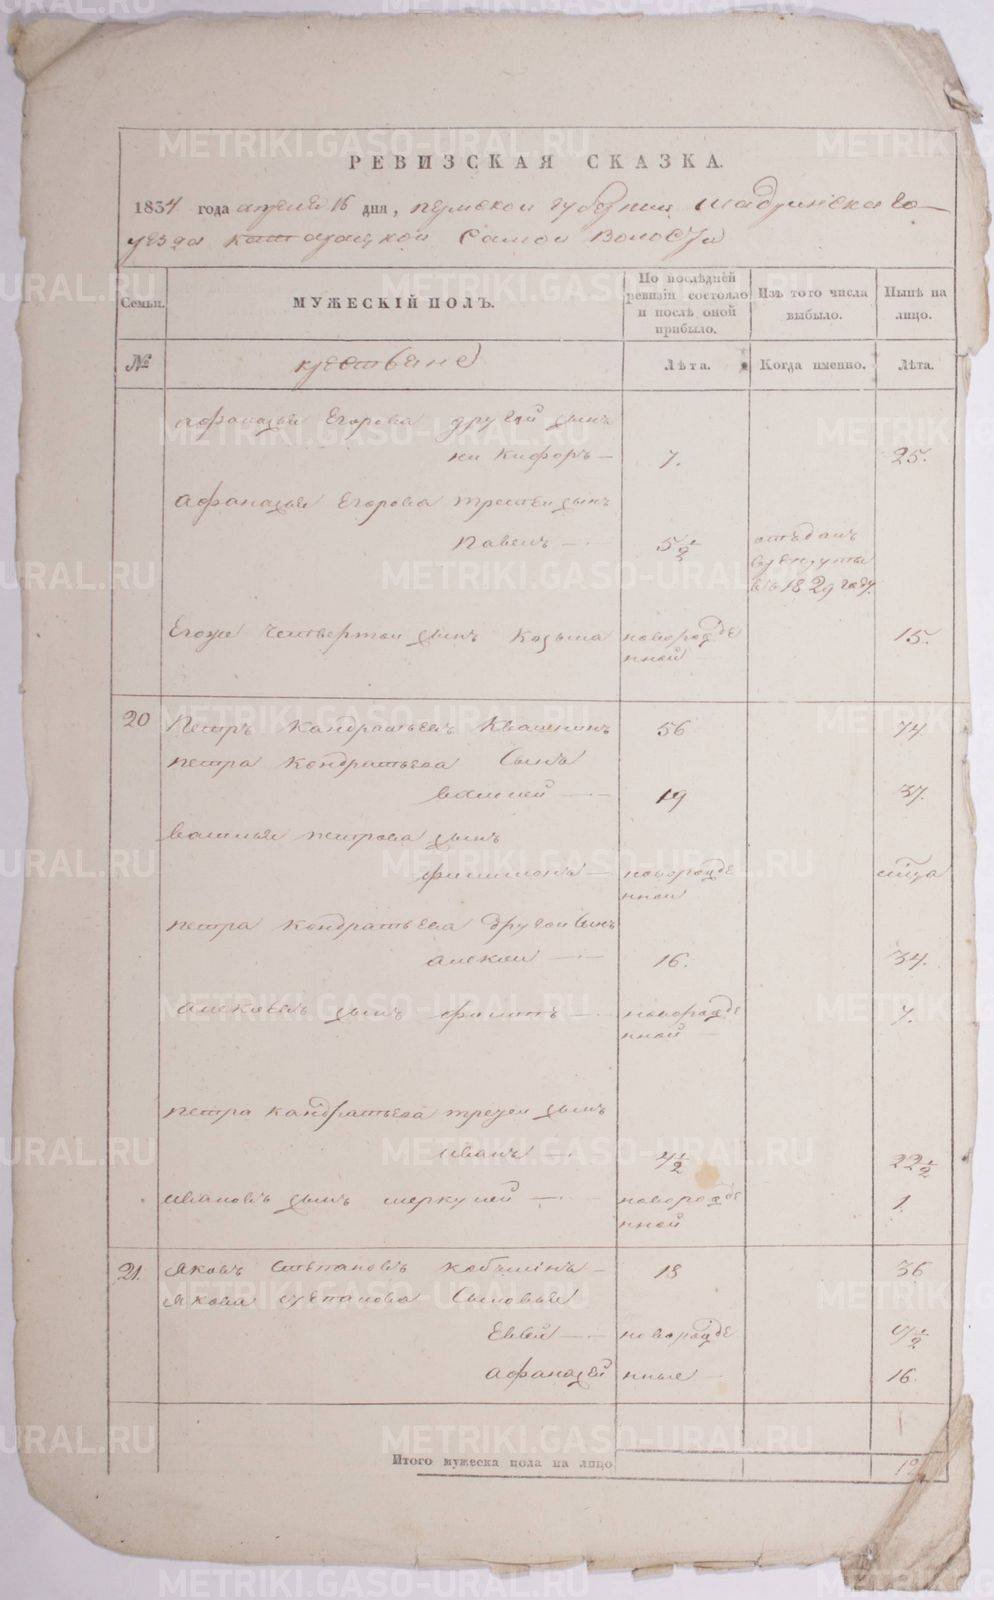 РЕВИЗСКАЯ СКАЗКА.
1834 года апреля 16 дня, пермской губернии Шадринскаго
уезда самой волости
Семьи. МУЖЕСКІЙ ПОЛЪ. По послѣдней ревизіи состояло и послѣ оной прибыло. Изъ того числа выбыло. Нынѣ на лицо.
№ крестьяне Лѣта. Когда именно. Лѣта.
афанасья Егорова другой сынъ
никифоръ 7. 25.
афанасья Егорова третей сынъ
павелъ 5½ отъданъ
врекруты
въ 1829 году.
Егожа четвертой сынъ козьма новорожде 15.
нной
20 Петръ Кандратьевъ Квашнинъ 56 74
петра кондратьева сынъ
василей 19 37.
василья петрова сынъ
филимонъ новорожде
нной
петра кондратьева другой сынъ
алексей 16. 34.
алексеевъ сынъ филипъ новорожде 7.
нной
петра кандратьева третей сынъ
иванъ 4½ 22½
ивановъ сынъ меркулей новорожде 1.
нной
21. яковъ степановъ 18 36
якова степанова сыновья
Евсей новорожде ½
афанасей нные 16.
Итого мужеска пола на лицо
METRIKI.GASO-URAL.RU